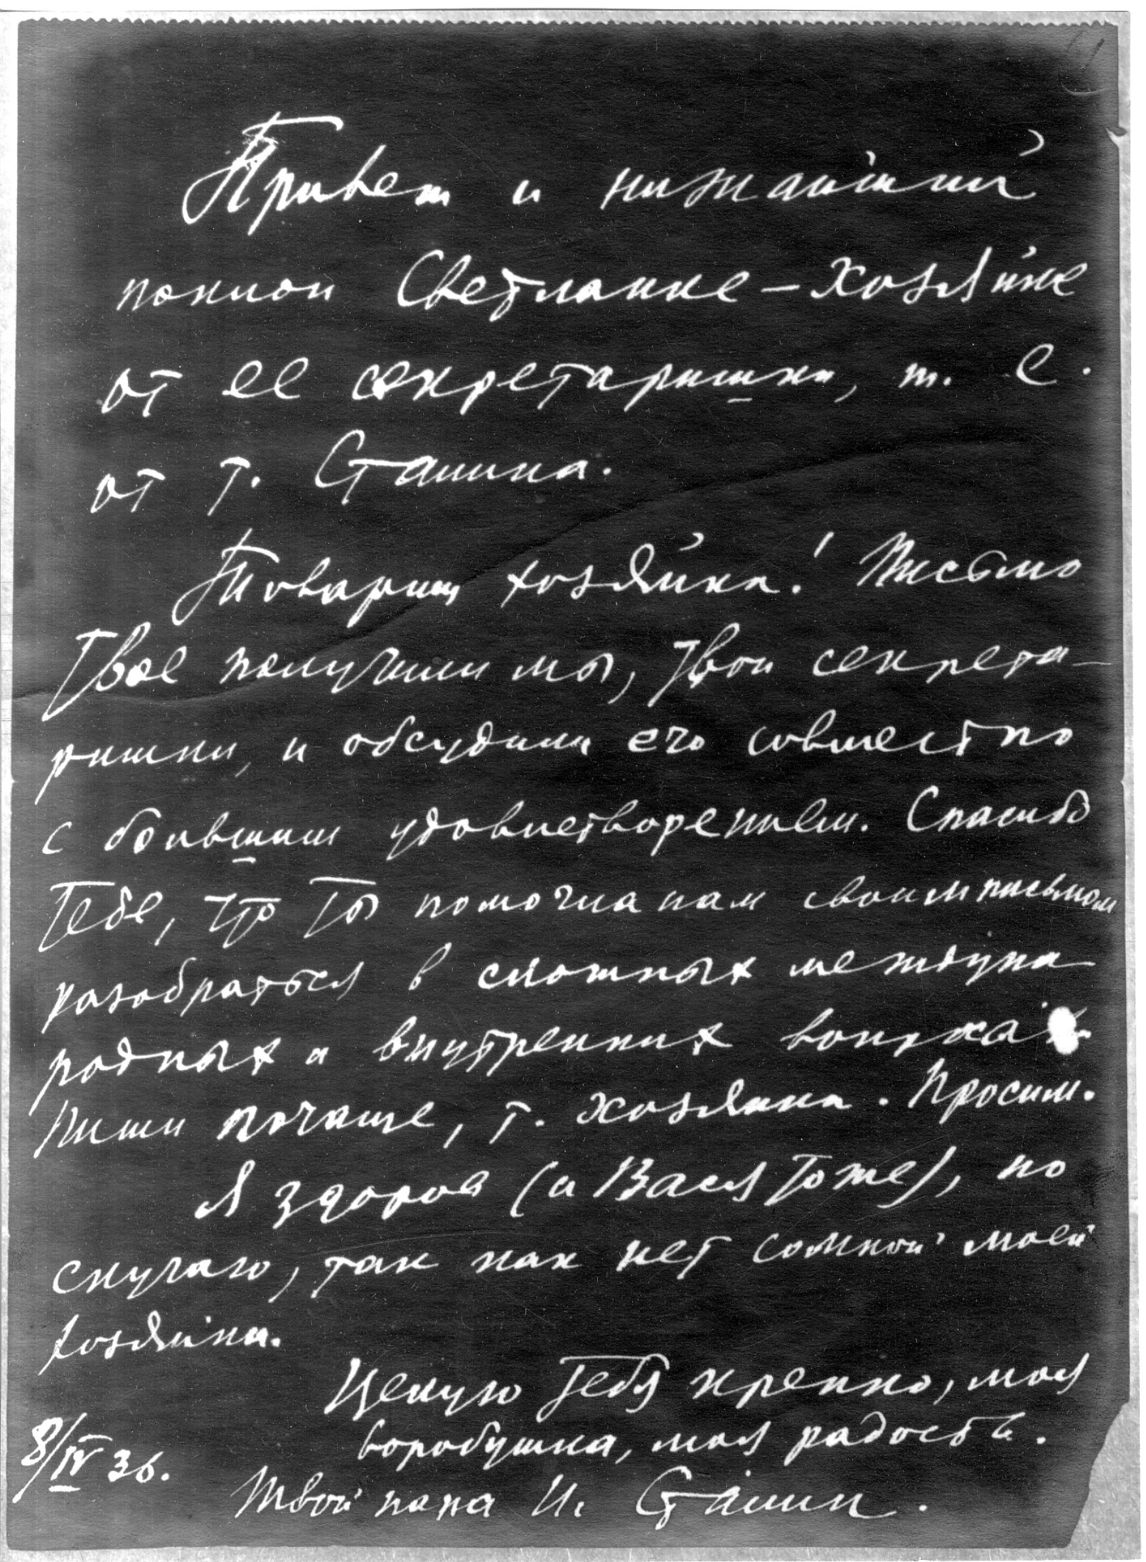 Привет и нижайший
поклон Светланке-Хозяйке
от ее секретаришки, т. е.
от т. Сталина.
Товарищ хозяйка! Письмо
Твое получили мы, твои секрета-
ришки, и обсудили его совместно
с большим удовлетворением. Спасибо
Тебе, что Ты помогла нам своим письмом
разобраться в сложных междуна-
родных и внутренних вопросах.
Пиши почаще, т. хозяйка. Просим.
Я здоров (и Вася тоже), но
скучаю, так как нет со мной моей
хозяйки.
Целую Тебя крепко, моя
воробушка, моя радость.
8/IV 36.
Твой папа И. Сталин.